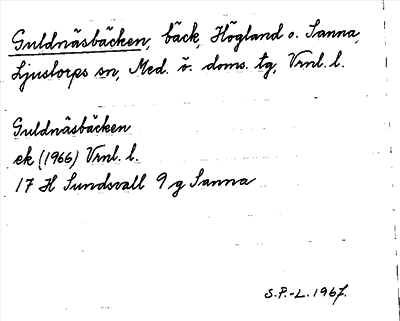 Guldnäsbäcken, bäck, Högland o. Sanna,
Ljustorps sn, Med. ö. doms. tg, Vrnl. l.
Guldnäsbäcken
ek (1966) Vrnl. l.
17 H Sundsvall 9 g Sanna
S.P.-L. 1967.